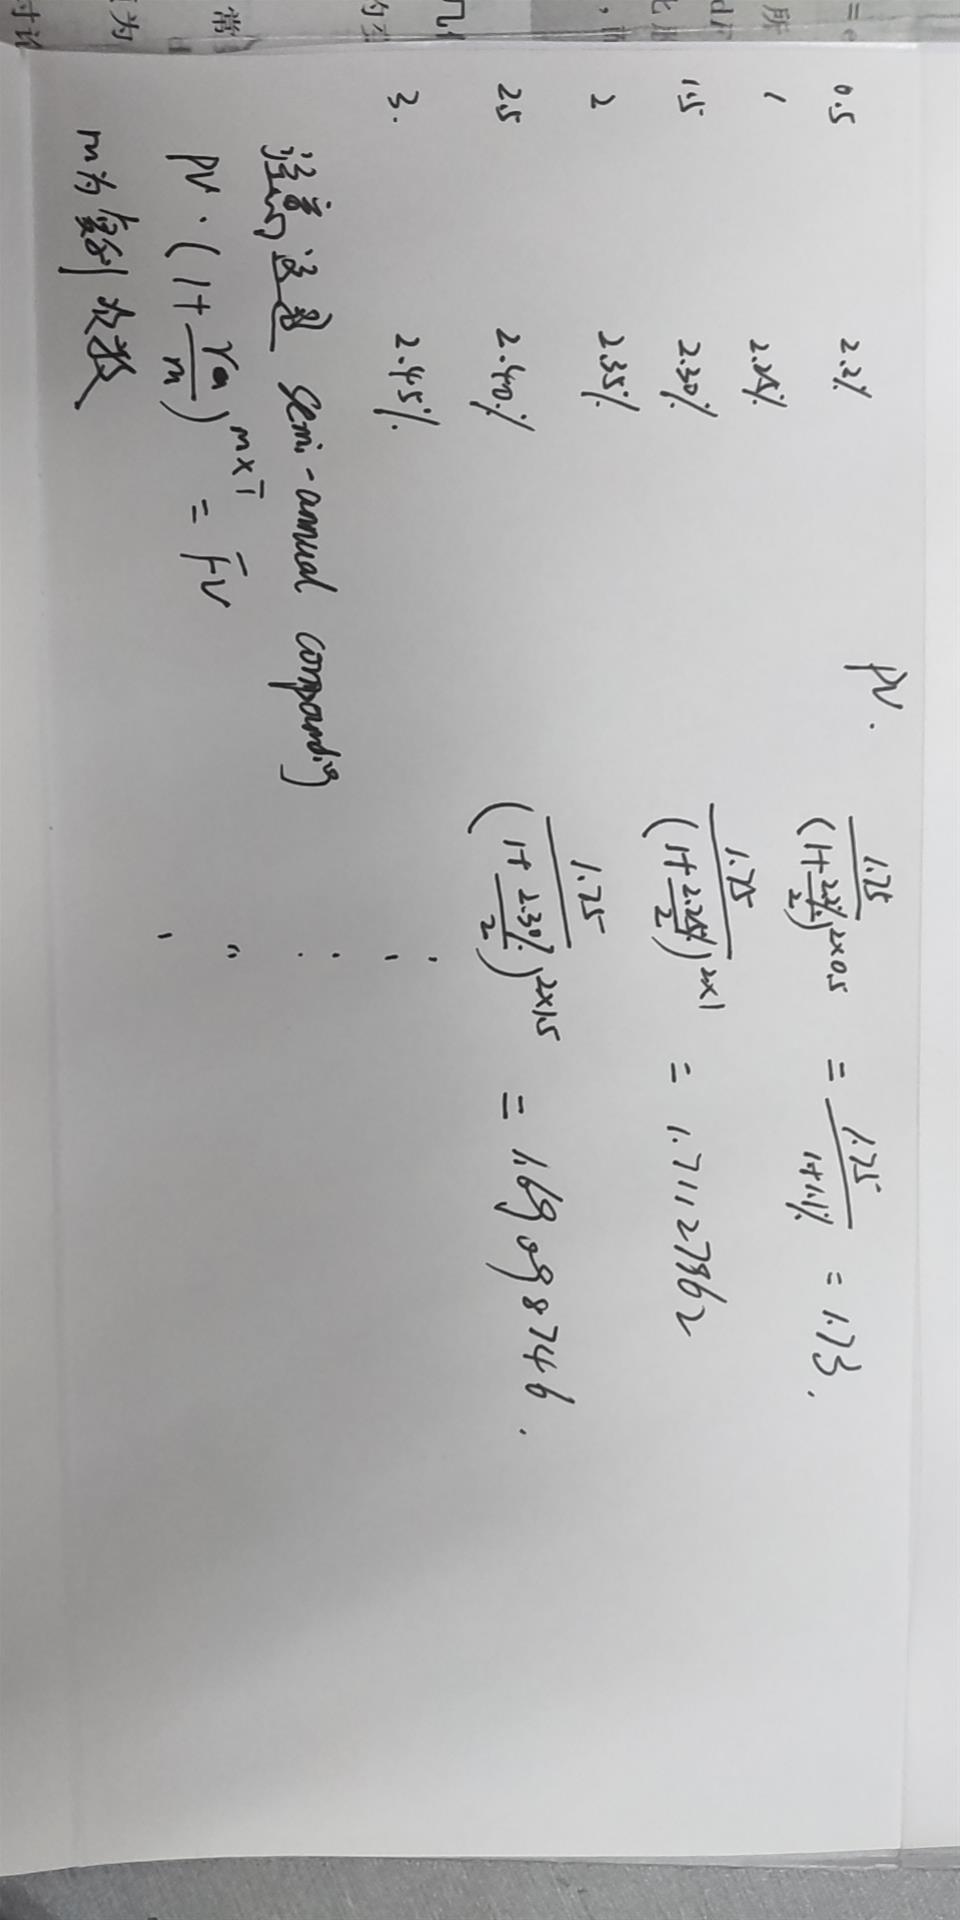 0.5 2.2%
1 2.25%
1.5 2.30%
2 2.35%
2.5 2.40%
3. 2.45%
注意这题 semi-annual compounding
PV · (1+ra/m)^m×T = FV
m为复利次数
PV.
1.75/(1+2.2%/2)^2×0.5 = 1.75/1+1.1% = 1.73.
1.75/(1+2.25%/2)^2×1 = 1.71127362
1.75/(1+2.30%/2)^2×1.5 = 1.69098746.